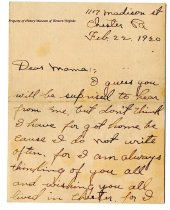 1117 Madison St
Property of History Museum of Western Virginia
Chester Pa
Feb. 22, 1920
Dear Mama:-
I guess you
will be suprised to hear
from me, but don't think
I have for got home be
cause I do not write
often, for I am always
thinking of you all
and wishing you all
lived in Chester, for I